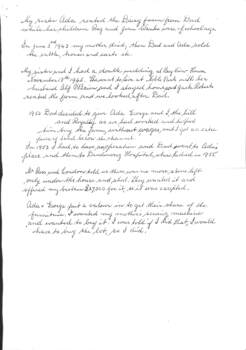 My sister Ada rented the Dairy farm from Dad
while her children Roy and were of school age.
In June 2 1943 my mother died, then Dad and Ada, sold
the cattle, horses and carts etc.
My sister and I had a double wedding at
November 1945. She went to live at with her
husband Alf and I stayed home and Jack
rented the farm and we looked after Dad.
1950 Dad decided to give Ada George and I the hill
and as we had worked and helped
him buy the farm without wages, and I got an extra
piece of land below the channel.
In 1953 I had to have an operation and Dad went to Ada's
place and then to Hospital, where he died in 1955
Mr and told us there was no more above left
only under the house and shed. They wanted it and
offered my brother for it, so it was accepted.
Ada & George put a value on to get their share of the
furniture. I wanted my mother's sewing machine
and wanted to buy it. I was told if I did that, I would
have to buy the lot, so I did.